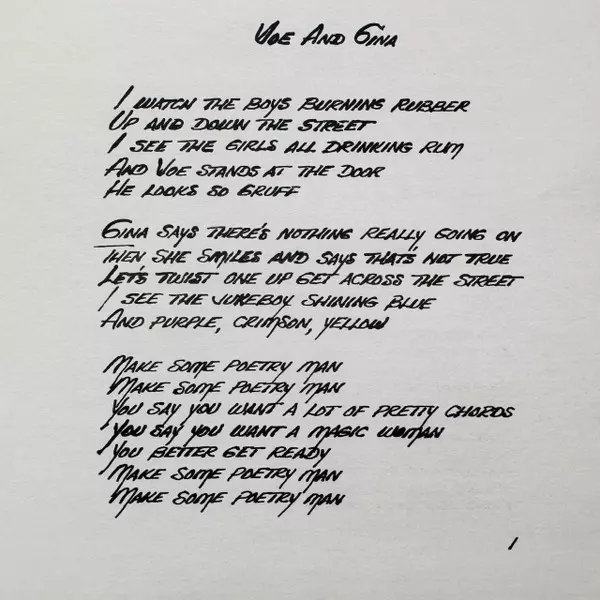 JOE AND GINA
I WATCH THE BOYS BURNING RUBBER
UP AND DOWN THE STREET
I SEE THE GIRLS ALL DRINKING RUM
AND JOE STANDS AT THE DOOR
HE LOOKS SO GRUFF
GINA SAYS THERE'S NOTHING REALLY GOING ON
THEN SHE SMILES AND SAYS THAT'S NOT TRUE
LET'S TWIST ONE UP GET ACROSS THE STREET
I SEE THE JUKEBOX SHINING BLUE
AND PURPLE, CRIMSON, YELLOW
MAKE SOME POETRY MAN
MAKE SOME POETRY MAN
YOU SAY YOU WANT A LOT OF PRETTY CHORDS
YOU SAY YOU WANT A MAGIC WOMAN
YOU BETTER GET READY
MAKE SOME POETRY MAN
MAKE SOME POETRY MAN
1